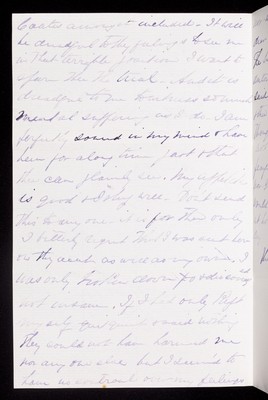 be dreadful to thy feelings to see me
in that terrible position. I want to
spare thee the trial. And it is
dreadful to me to witness so much
mental suffering as I do. I am
perfectly sound in my mind & have
been for a long time past & that
they can plainly see. My appetite
is good & I sleep well. Don't send
this to any one it is for thee only
I bitterly regret that I was sent here
on thy account as well as my own.
was only broken down
not insane. If I had only kept
my self quiet and said nothing
They would not have harmed me
nor any one else but I seemed to
have no control over my feelings